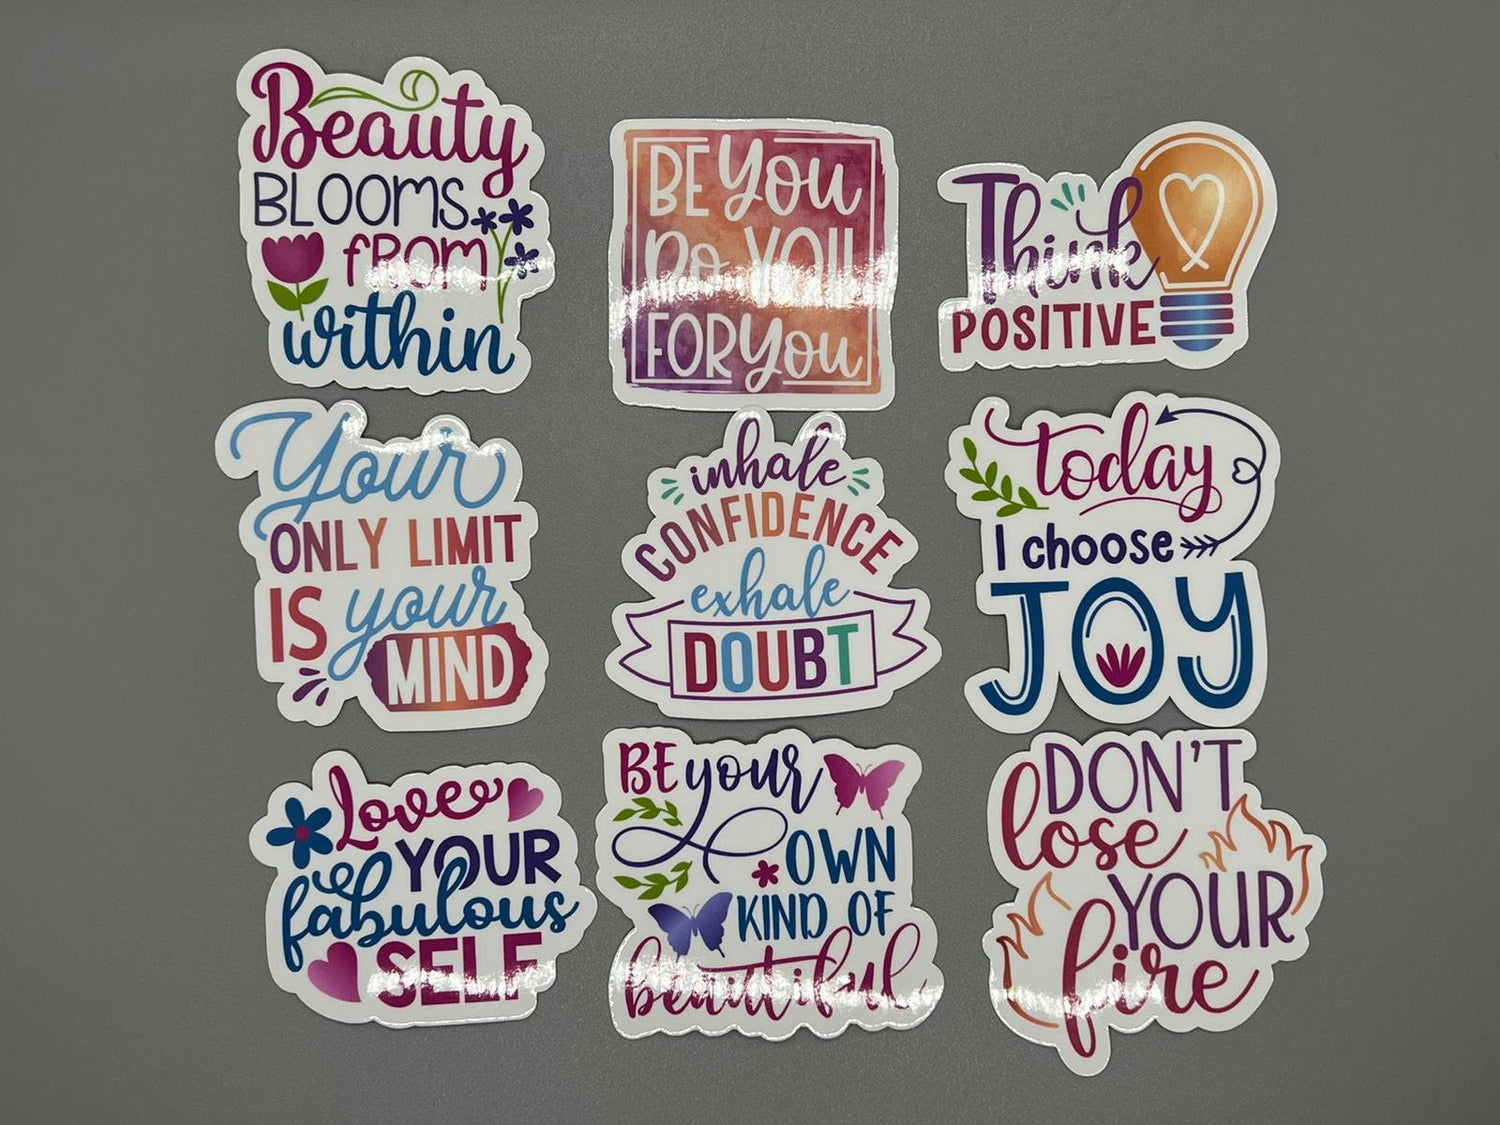 Beauty
BLOOMS
fROM
within
BE You
Do YOU
FOR You
Think
POSITIVE
Your
ONLY LIMIT
IS your
MIND
inhale
CONFIDENCE
exhale
DOUBT
today
I choose
JOY
Love
YOUR
fabulous
SELF
BE your
OWN
KIND OF
beautiful
DON'T
lose
YOUR
fire